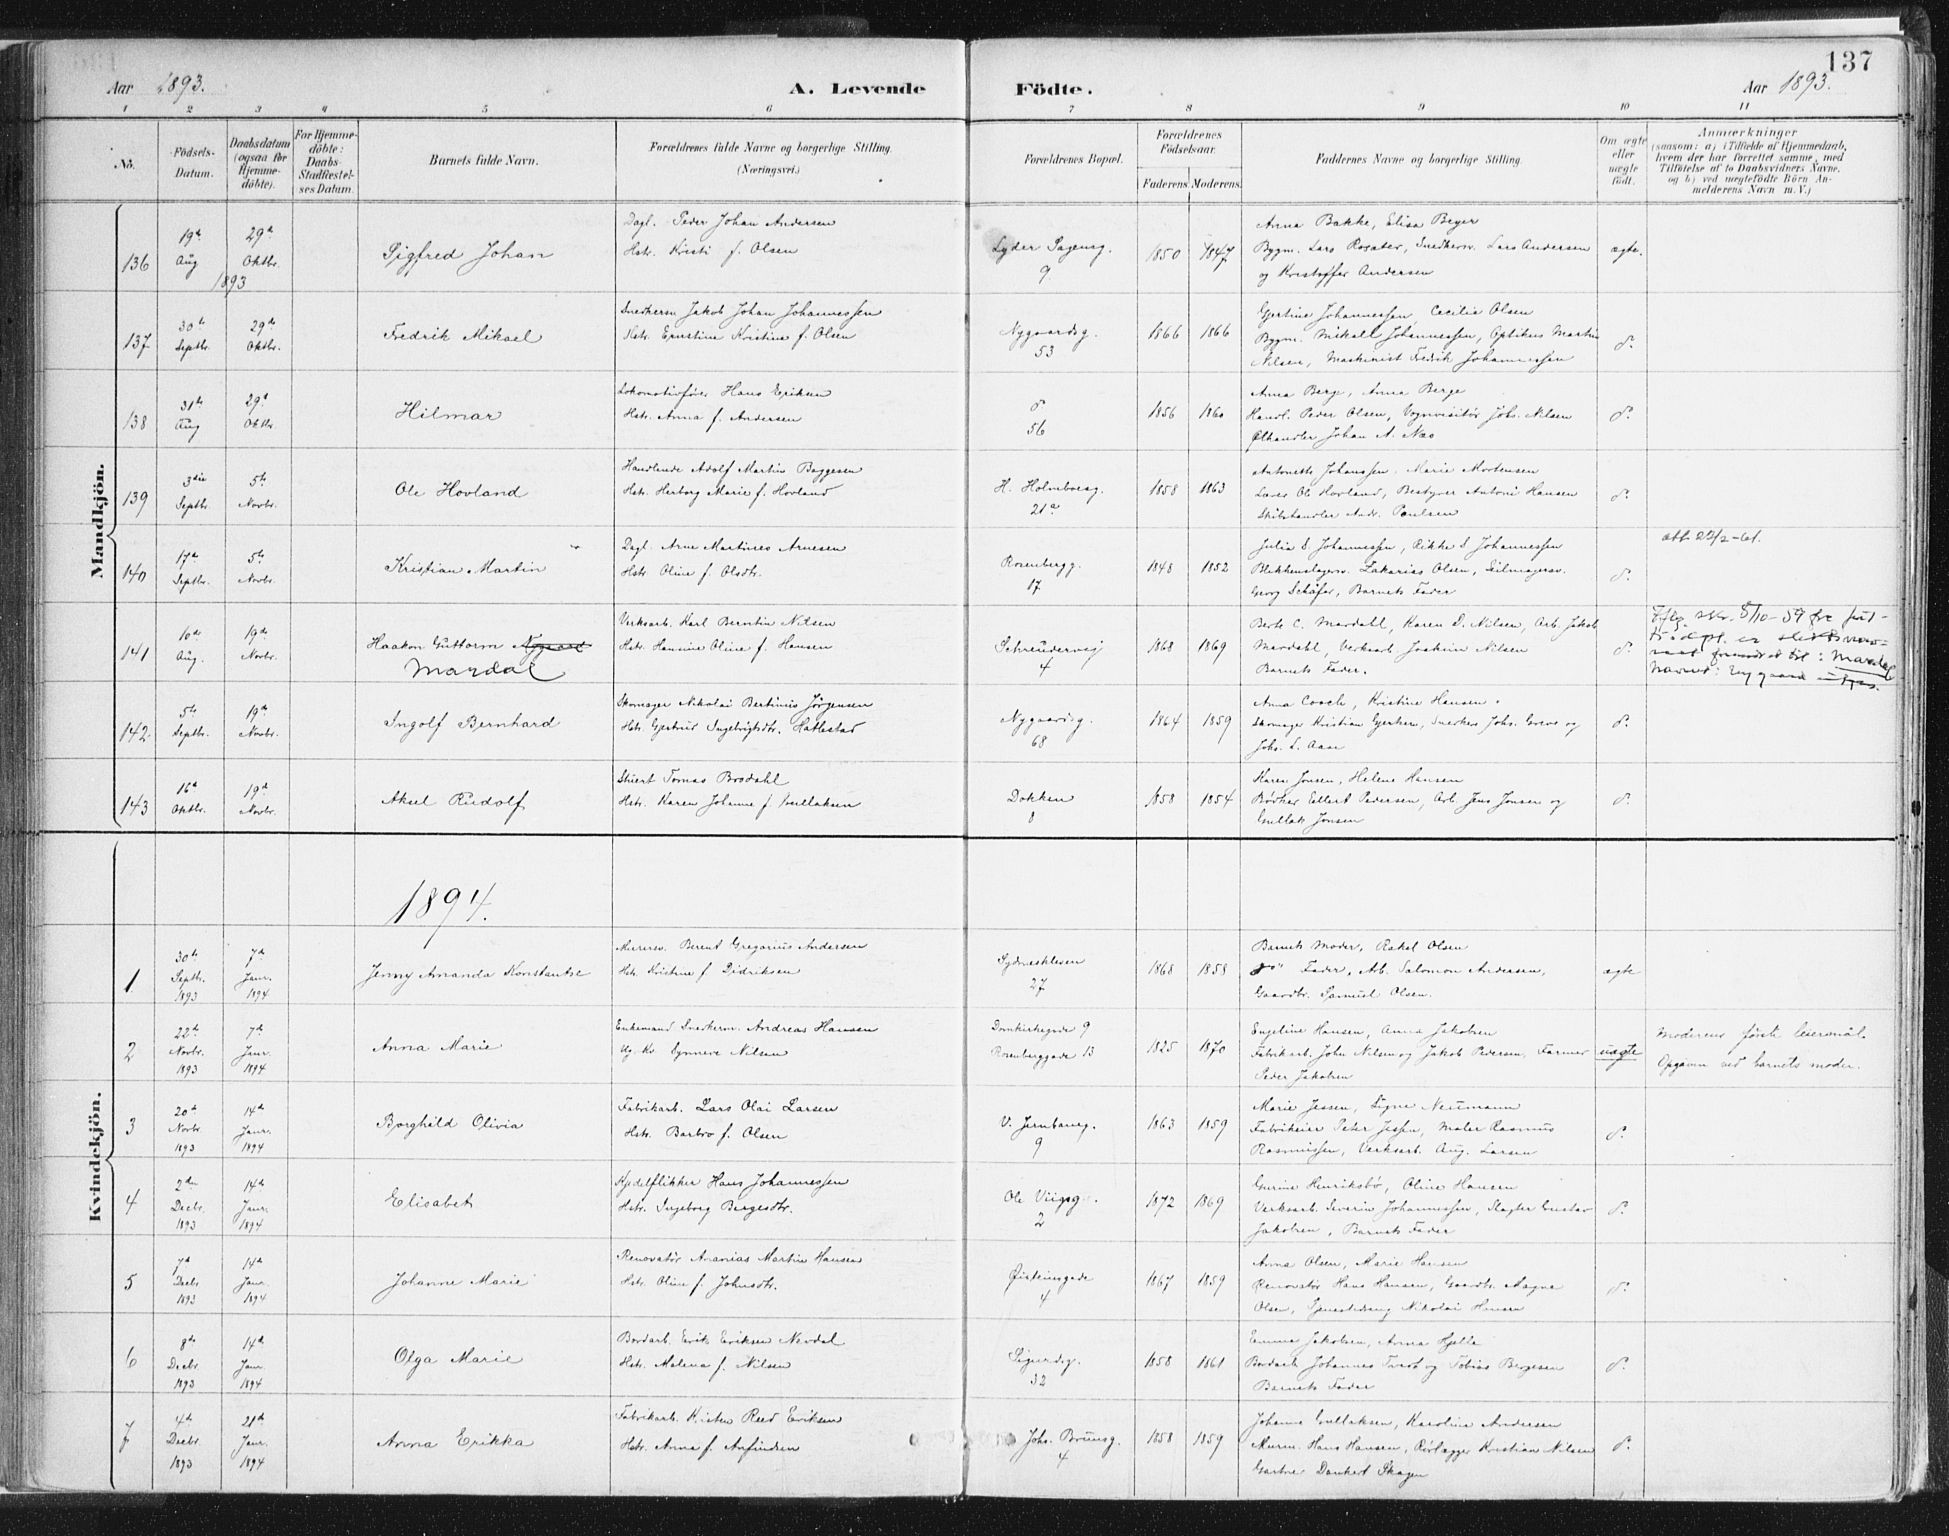 137
Aar 1893. A. Levende Födte. Aar 1893.
1 2 3 4 5 6 7 8 9 10 11
No. Födsels-Datum. Daabsdatum (ogsaa for Hjemmedöbte). For Hjemmedöbte: Daabs-Stadfæstelses Datum. Barnets fulde Navn. Forældrenes fulde Navne og borgerlige Stilling. (Næringsvei.) Forældrenes Bopæl. Forældrenes Födselsaar. Faderens Moderens. Faddernes Navne og borgerlige Stilling. Om ægte eller uægte født. Anmærkninger (saasom: a) i Tilfælde af Hjemmedaab, hvem der har forrettet samme, med Tilföielse af to Daabsvidners Navne, og b) ved uægtefödte Börn Anmelderens Navn m. V.)
Mandkjön.
136 19de Aug 1893 29de Oktbr. Sigfred Johan
Dagl. Peder Johan Andersen
Hstr. Kristi f. Olsen
Lyder Sagensg. 9 1850 1847
Anna Bakke, Elisa Beyer
Bygm. Lars Rosater, Snedkersv. Lars Andersen
og Kristoffer Andersen
ægte.
137 30te Septbr. 29de Oktbr. Fredrik Mikael
Snedkersv Jakob Johan Johannessen
Hstr. Ernstine Kristine f. Olsen
Nygaardsg. 53 1866 1866
Gjertine Johannessen, Cecilia Olsen
Bygm. Mikall Johannessen, Optikus Martin
Nilsen, Maskinist Fredrik Johannessen
do.
138 31te Aug 29de Oktbr. Hilmar
Lokomotivfører Hans Eriksen
Hstr. Anna f. Andersen
do 56 1856 1860
Anna Berg, Anna Berge
Handl. Peder Olsen, Vognvisitør Johs. Nilsen
Ølhandler Johan A. Næs
do.
139 3die Septbr. 5te Novbr. Ole Hovland
Handlende Adolf Martin Baggesen
Hstr. Herborg Marie f. Hovland
H. Holmboesg. 21a 1858 1863
Antonette Johanssen, Marie Mortensen
Lærer Ole Hovland, Bestyrer Antoni Hansen
Skibshandler Andr. Paulsen
do.
140 17de Septbr. 5te Novbr. Kristian Martin
Dagl. Arne Martines Arnesen
Hstr. Oline f. Olsdtr.
Rosenbergg. 17 1848 1852
Julia S. Johannessen, Rikke S Johannessen
Blikkenslagersv. Zakarias Olsen, Seilmagersv.
Georg Schäfer, Barnets Fader
do.
att. 22/2-61.
141 10de Aug. 19de Novbr. Haakon Guttorm Nygaard
Mardal
Verksarb. Karl Berntin Nilsen
Hstr. Hansine Oline f. Hansen
Schreudersvej 4 1868 1869
Berte C. Mardahl, Karen D. Nilsen, Arb. Jakob
Mardahl, Verksarb Joakim Nilsen
Barnets Fader.
do.
Iflg. skr. 5/10-59 fra
er slektsnav-
net forandret til: Mardal
Navnet: Nygaard utgår.
142 5te Septbr. 19de Novbr. Ingolf Bernhard
Skomager Nikolai Bertinius Jörgensen
Hstr. Gjertrud Ingebrigtsdtr. Hattestad
Nygaardsg. 68 1864 1859
Anna Cooch, Kristine Hansen.
Skomager Kristian Gjerken, Snedker Johs. Greve og
Johs. L. Aase
do.
143 16de Oktbr. 19de Novbr. Aksel Rudolf
Stuert Tomas Brodahl
Hstr. Karen Johanne f. Gullaksen
Dokken 8 1858 1854
Karen Jonsen, Helene Hansen
Bødker Eellert Pedersen, Arb. Jens Jonsen og
Gullak Jonsen
do.
1894.
Kvindekjön.
1 30te Septbr. 1893 7de Janr. 1894 Jenny Amanda Konstantse
Murersv. Berent Gregorius Andersen
Hstr. Kristine f Didriksen
Sydneskleven 27 1868 1858
Barnets Moder, Rakel Olsen
do" Fader, Arb. Salomon Andersen,
Gaardbr. Samuel Olsen.
ægte
2 22de Novbr. 1893 7de Janr. 1894 Anna Marie
Enkemand Snedkerm. Andreas Hansen
Ug. Kv. Synneve Nilsen
Domkirkegade 9
Rosenberggade 13
1825 1870
Engeline Hansen, Anna Jakobsen
Fabrikarb. John Nilsen og Jakob Pedersen, Farmer
Peder Jakobsen
uægte
Moderens første leiermål.
Opgaven ved barnets moder.
3 20de Novbr 1893 14de Janr. 1894 Borghild Olivia
Fabrikarb. Lars Olai Larsen
Hstr. Barbro f. Olsen
V. Jernbaneg. 9 1863 1859
Marie Jessen, Signe Neumann
Fabrikeier Peter Jessen, Maler Rasmus
Rasmussen, Verksarb. Aug. Larsen
do.
4 2den Decbr. 1893 14de Janr. 1894 Elisabet
Kjedelflikker Hans Johannessen
Hstr. Ingeborg Bergesdtr.
Ole Viigsg. 2 1872 1869
Gurine Henriksbø, Oline Hansen
Verksarb. Severin Johannessen, Slagter Gustav
Jakobsen, Barnets Fader
do.
5 7de Decbr 1893 14de Janr. 1894 Johanne Marie
Renovatør Ananias Martin Hansen
Hstr. Oline f. Johnsdtr.
Øisteinsgade 4 1867 1859
Anna Olsen, Marie Hansen
Renovatør Hans Hansen, Gaardbr. Magne
Olsen, Tjenestedreng Nikolai Hansen
do.
6 8de Decbr. 1893 14de Janr. 1894 Olga Marie
Bordarb. Erik Eriksen Nevdal
Hstr. Malena f. Nilsen
Sigurdsg. 32 1858 1861
Emma Jakobsen, Anna Hjelle
Bordarb Johannes Tvedt og Tobias Bergesen
Barnets Fader
do.
7 4de Decbr 1893 21de Janr. 1894 Anna Erikka
Fabrikarb. Kristen Reed Eriksen
Hstr. Anna f. Anfindsen
Johs. Brunsg. 4 1858 1859
Johanna Gullaksen, Karoline Andersen
Murm. Hans Hansen, Rørlægger Kristian Nilsen
Gartner Dankert Skagen
do.